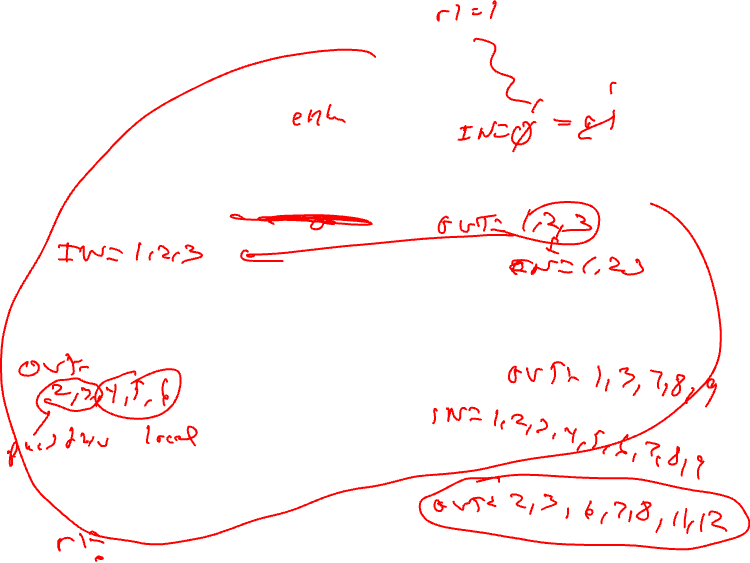 r1=1
IN=∅ = ∅
OUT= 1,2,3
IN= 1,2,3
IN= 1,2,3
OUT=
2,3,4,5,6
local
OUT= 1,3,7,8,9
IN= 1,2,3,4,5,6,7,8,9
OUT= 2,3,6,7,8,11,12
r1=